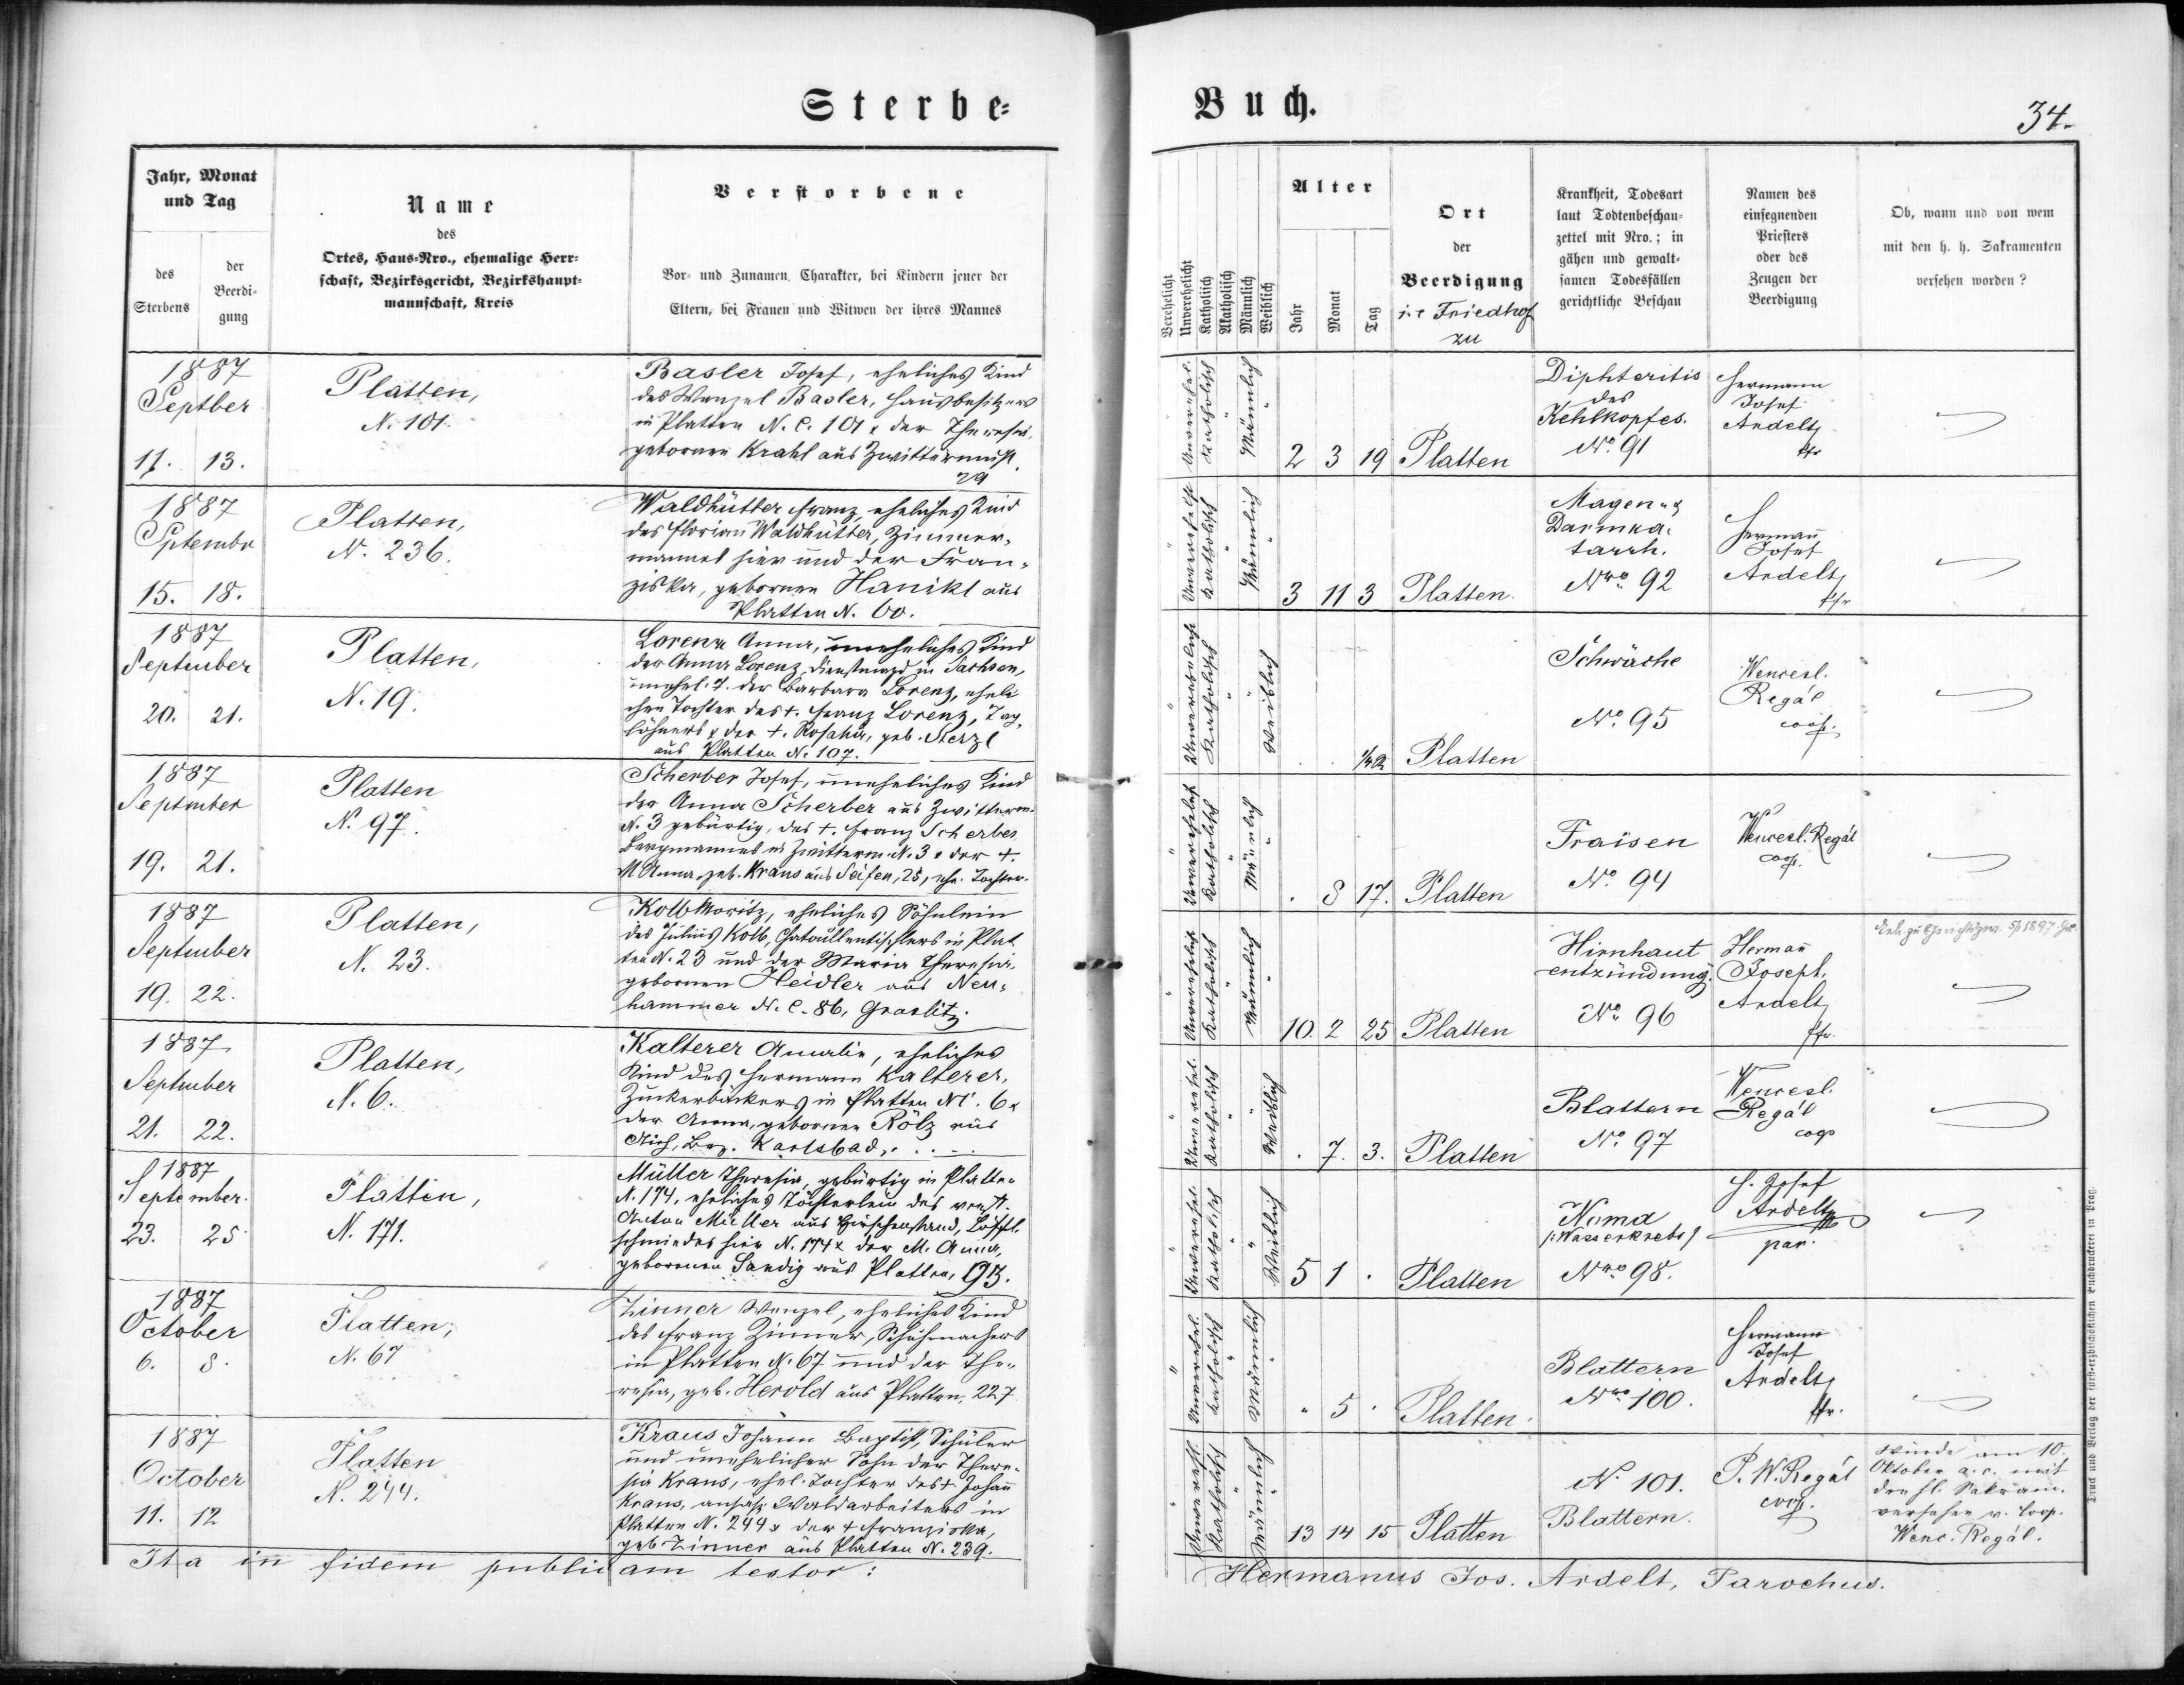 Sterbe-
Jahr, Monat
und Tag
des
Sterbens
der
Beerdi-
gung
Name
des
Ortes, Haus-Nro., ehemalige Herr-
schaft, Bezirksgericht, Bezirkshaupt-
mannschaft, Kreis
Verstorbene
Vor- und Zunamen, Charakter, bei Kindern jener der
Eltern, bei Frauen und Witwen der ihres Mannes
1887
Septber
11. 13.
Platten,
N. 101.
Basler Josef, eheliches Kind
des Wenzel Basler, Hausbesitzers
in Platten N. C. 101 & der Theresia,
gebornen Krahl aus Zwittermühl
29
1887
Septembr
15. 18.
Platten,
N. 236.
Waldhütter Franz, eheliches Kind
des Florian Waldhütter, Zimmer-
mannes hier und der Fran-
ziska, gebornen Hanikl aus
Platten N. 60.
1887
September
20. 21.
Platten,
N. 19.
Lorenz Anna, uneheliches Kind
der Anna Lorenz, Dienstmagd in Sachsen,
unehel. T. der Barbara Lorenz, eheli
chen Tochter des +. Franz Lorenz, Tag-
löhners & der +. Rosalia, geb. Sterzl
aus Platten N. 107.
1887
September
19. 21.
Platten
N. 97.
Scherber Josef, uneheliches Kind
der Anna Scherber aus Zwitterm.
N. 3 gebürtig, des +. Franz Scherber
Bergmannes in Zwitterm. N. 3 & der +.
M Anna geb. Kraus aus Seifen, 25, ehe. Tochter.
1887
September
19. 22.
Platten,
N. 23.
Kolb Moritz, eheliches Söhnlein
des Julius Kolb, Chatoullentischlers in Plat
ten N. 23 und der Maria Theresia,
gebornen Heidler aus Neu-
hammer N. C. 86, Graslitz.
1887
September
21. 22.
Platten,
N. 6.
Kalterer Amalie, eheliches
Kind des Hermann Kalterer,
Zuckerbäckers in Platten N. 6 &
der Anna, gebornen Rölz aus
Aich, Bez. Karlsbad.
1887
September.
23. 25
Platten,
N. 171.
Müller Theresia, gebürtig in Platten
N. 174, eheliches Töchterlein des verst.
Anton Müller aus Hirschenstand, Löffl-
schmiedes hier N. 174 & der M. Anna,
gebornen Sandig aus Platten, 93.
1887
October
6. 8.
Platten,
N. 67
Zinner Wenzel, eheliches Kind
des Franz Zinner, Schuhmachers
in Platten N. 67 und der The-
resia, geb. Herold aus Platten, 227
1887
October
11. 12
Platten
N. 244.
Kraus Johann Baptist, Schüler
und unehelicher Sohn der There-
sia Kraus, ehel. Tochter des + Johann
Kraus, ansäß. Waldarbeiters in
Platten N. 244 & der + Franziska,
geb Zinner aus Platten N. 239.
Ita in fidem publicam testor:
Buch.
34.
Verehelicht
Unverehelicht
Katholisch
Akatholisch
Männlich
Weiblich
Alter
Jahr
Monat
Tag
Ort
der
Beerdigung
im Friedhof
zu
Krankheit, Todesart
laut Todtenbeschau-
zettel mit Nro.; in
gähen und gewalt-
samen Todesfällen
gerichtliche Beschau
Namen des
einsegnenden
Priesters
oder des
Zeugen der
Beerdigung
Ob, wann und von wem
mit den h. h. Sakramenten
versehen worden?
Unverehel.
Katholisch
Männlich
2 3 19 Platten
Diphteritis
des
Kehlkopfes.
No. 91
Hermann
Josef
Ardelt,
Pfr
Unverehelicht
Katholisch
Männlich
3 11 3 Platten.
Magen- &
Darmka-
tarrh.
Nro 92
Hermann
Josef
Ardelt,
Pfr
Unverehelicht
Katholisch
Weiblich
Platten
Schwäche
No. 95
Wencesl.
Regál
coop.
Unverehelicht
Katholisch
Männlich
. 8 17. Platten
Fraisen
No. 94
Wencesl. Regál
coop.
Unverehelicht
Katholisch
Männlich
10. 2 25 Platten
Hirnhaut
entzündung.
No. 96
Hermann
Joseph.
Ardelt,
Pfr.
5/1 1897
Unverehel.
Katholisch
Weiblich
. 7. 3. Platten
Blattern
No. 97
Wencesl.
Regál
coop
Unverehel.
Katholisch
Weiblich
5 1 . Platten
Noma
/:Wasserkrebs/
Nro 98.
H. Josef
Ardelt,
par.
Unverehel.
Katholisch
Männlich
" 5 . Platten.
Blattern
Nro. 100.
Hermann
Josef
Ardelt,
Pfr.
Unverehl.
Katholisch
Männlich
13 14 15 Platten
N. 101.
Blattern.
P. W. Regál
coop.
Wurde am 10.
Oktober a. c. mit
den hl. Sakram.
versehen v. Coop.
Wenc. Regál.
Hermanus Jos. Ardelt, Parochus.
Druck und Verlag der fürst-erzbischöflichen Buchdruckerei in Prag.